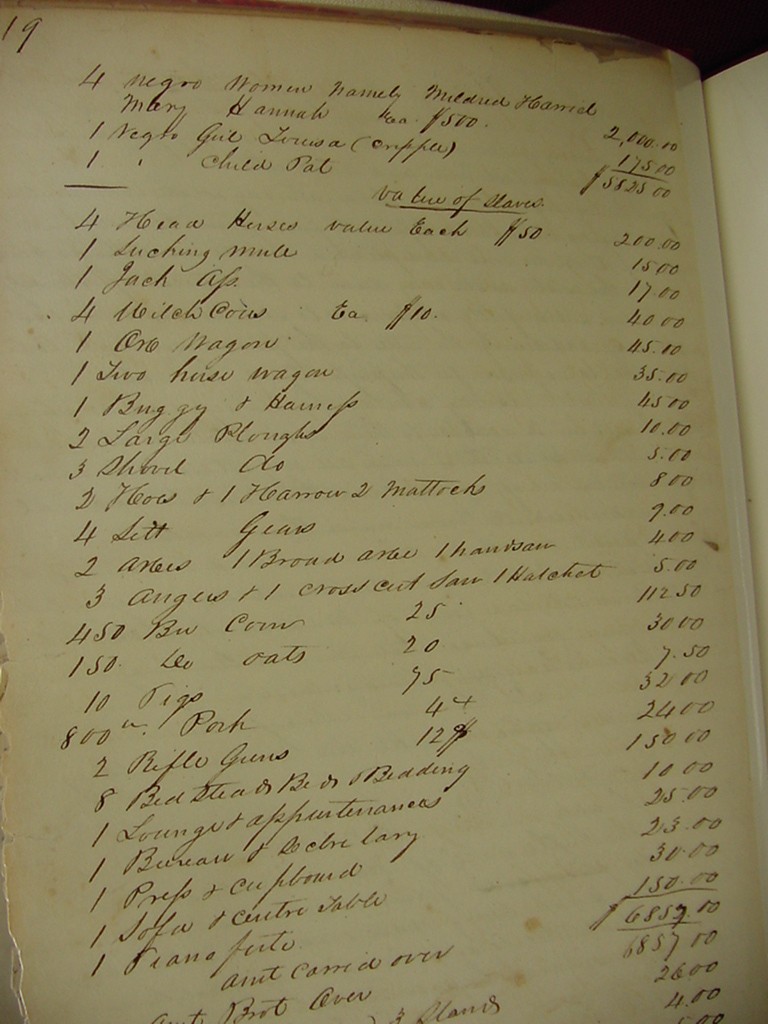 19
4 negro Women Namely Mildred Harriet
Mary Hannah Ea $500. 2,000.00
1 Negro Girl Louisa (Cripple) 175.00
1 " Child Pat $5825.00
value of slaves
4 Head Horses value Each $50 200.00
1 Suching mule 15.00
1 Jack Ass 17.00
4 Milch Cows Ea $10. 40.00
1 Oxe Wagon 45.00
1 Two horse wagon 35.00
1 Buggy & Harness 45.00
2 Large Ploughs 10.00
3 Shovel do 5.00
2 Hoes & 1 Harrow 2 Mattocks 8.00
4 Sett Gears 9.00
2 axes 1 Broad axe 1 handsaw 4.00
3 Augers & 1 cross cut Saw 1 Hatchet 5.00
450 Bu Corn 25 112.50
150 do oats 20 30.00
10 Pigs 75 7.50
800 Pork 4 32.00
2 Rifle Guns 12$ 24.00
8 Bed Steads Beds & Bedding 150.00
1 Lounge & appurtenances 10.00
1 Bureau & Secretary 25.00
1 Press & Cupboard 23.00
1 Sofa & Centre Table 30.00
1 Piano forte 150.00
amt carried over $6857.00
amt Brot Over 6857.00
3 Stands 26.00
4.00